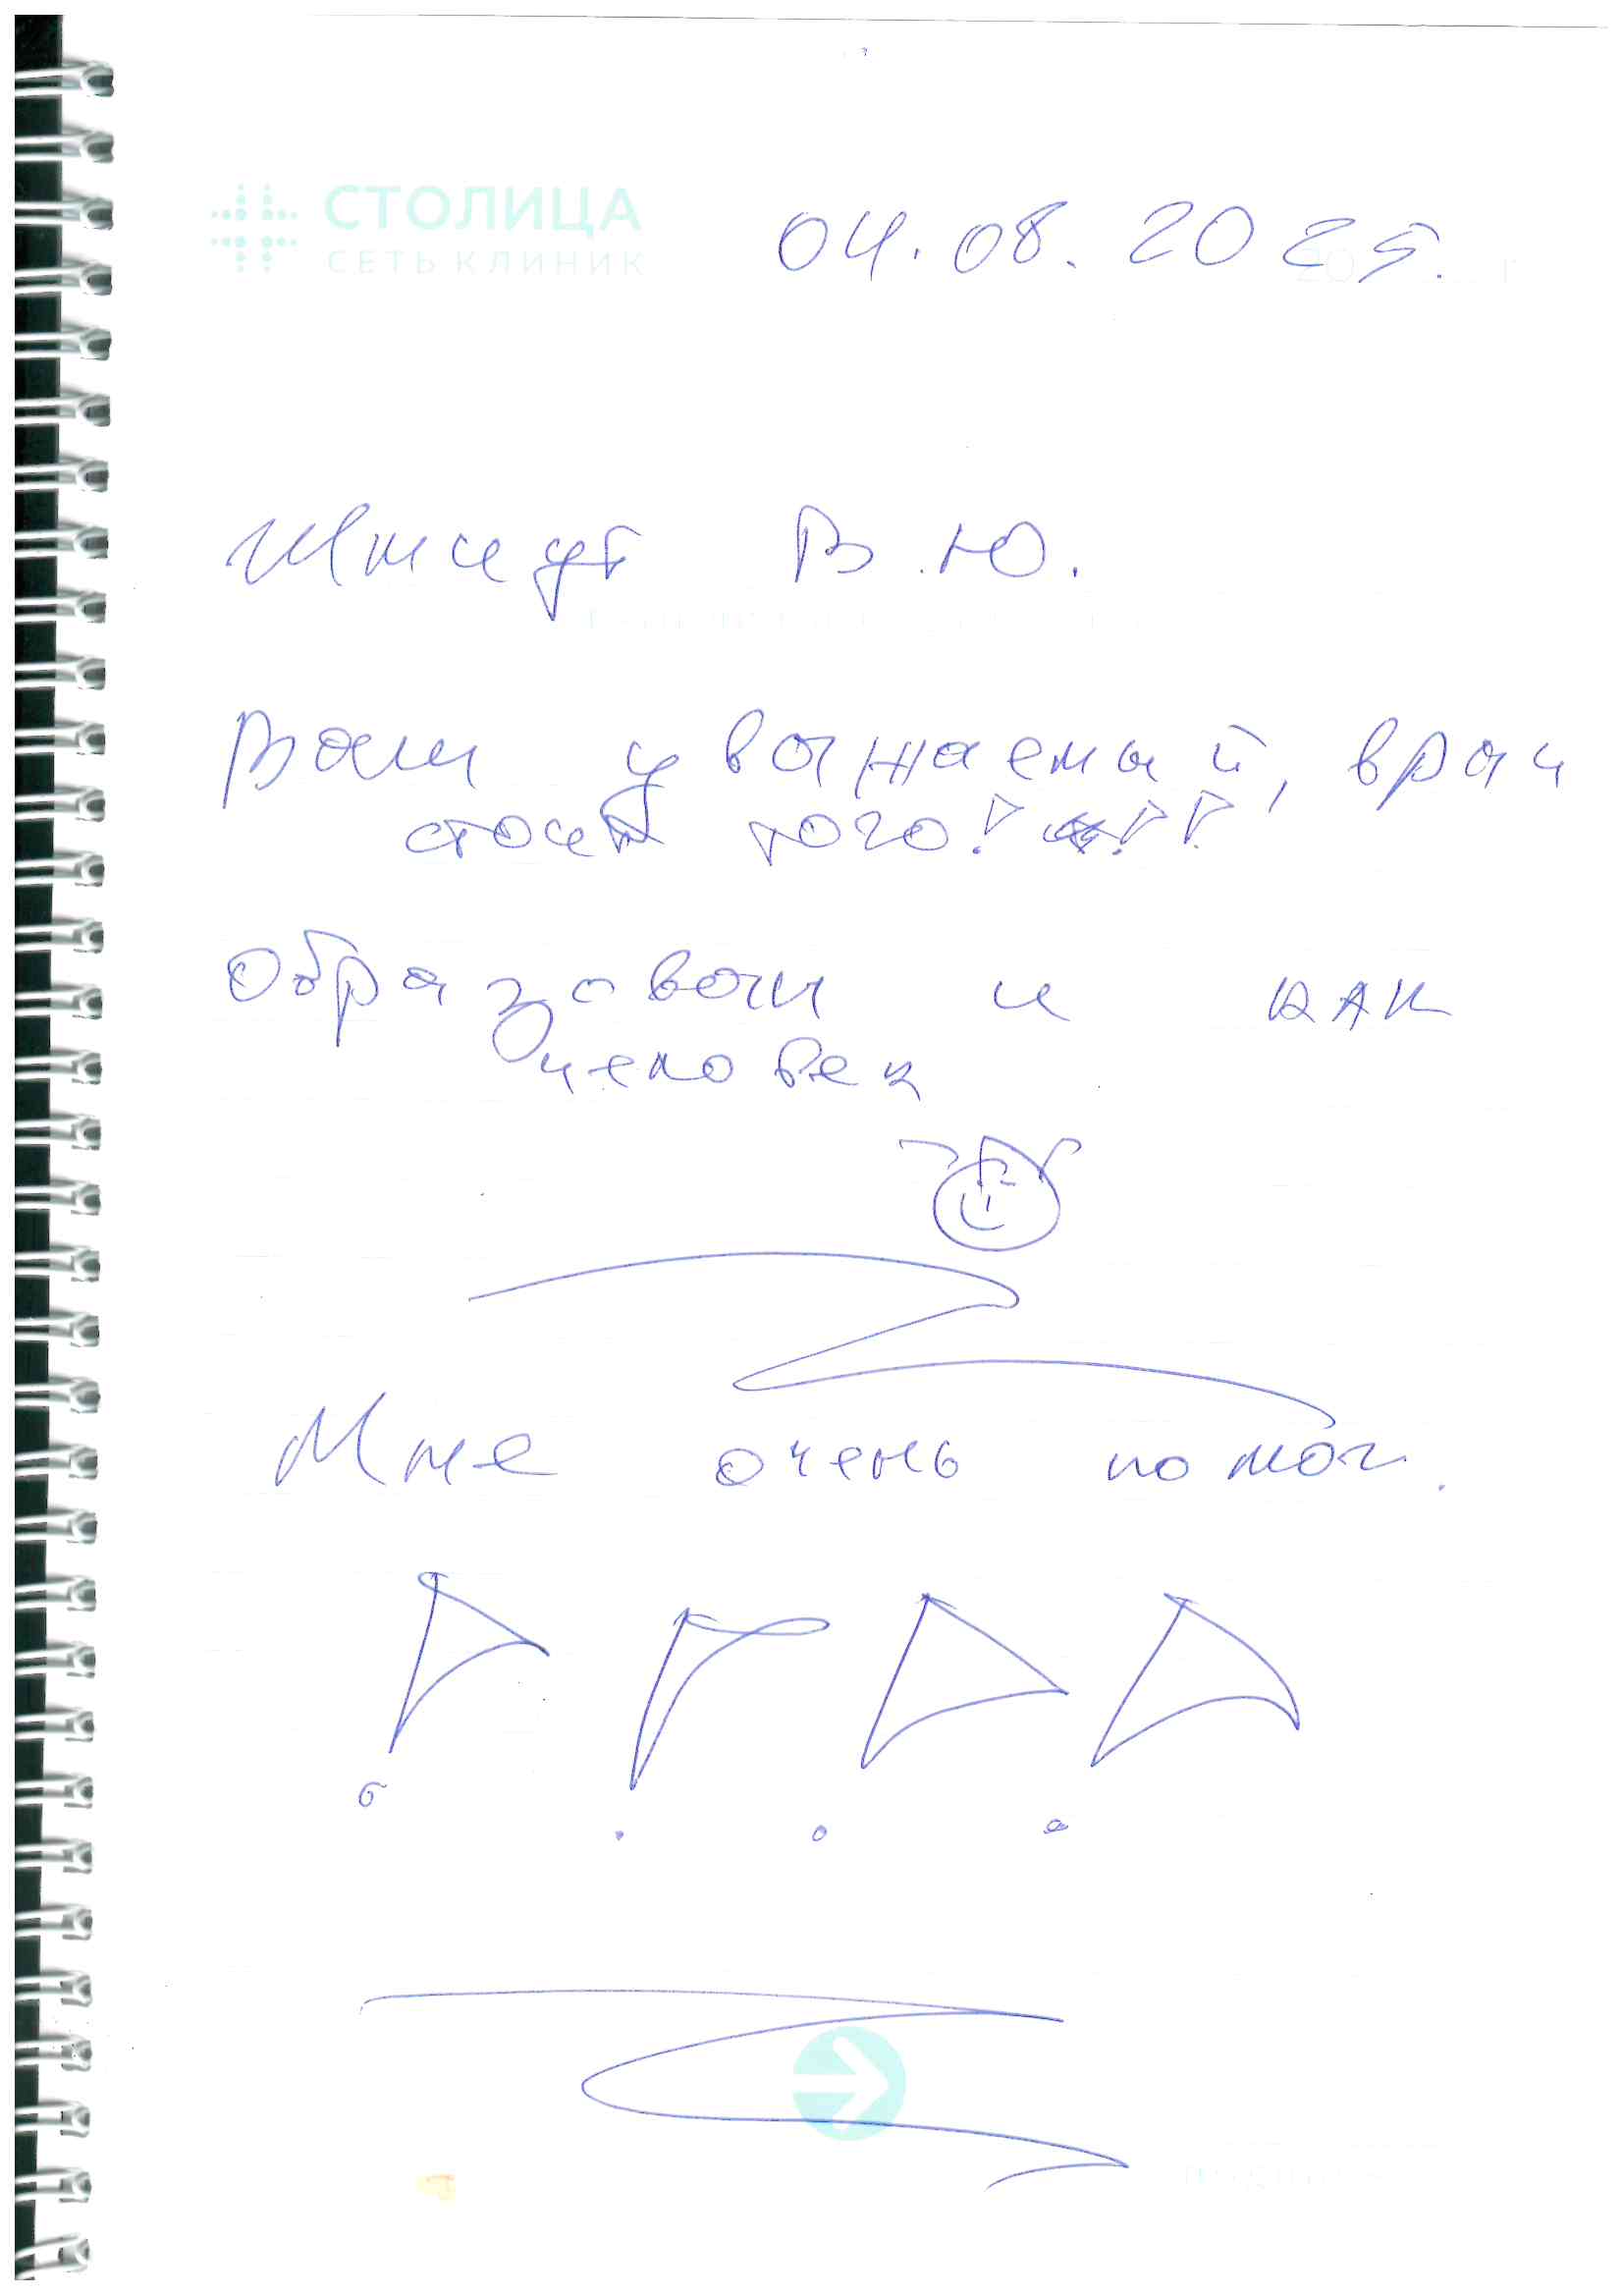 СТОЛИЦА
СЕТЬ КЛИНИК
04.08.2025.
Шмидт В.Ю.
Ваш уважаемый, врач
стоит того! !!
Образован и как
человек
Мне очень помог.
! ! ! !